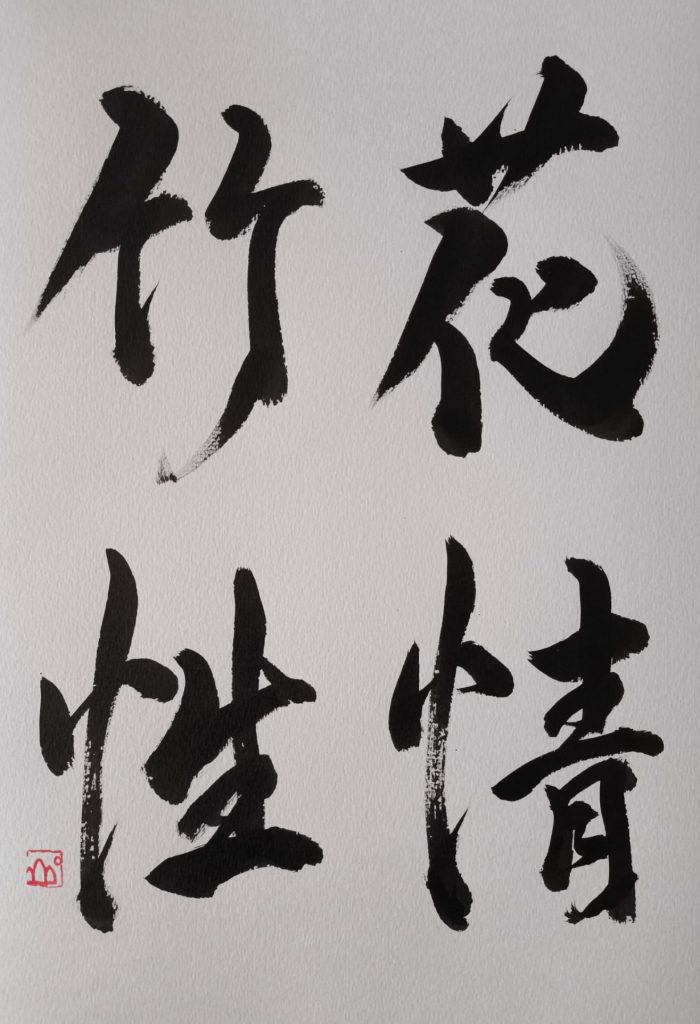 花情
竹性